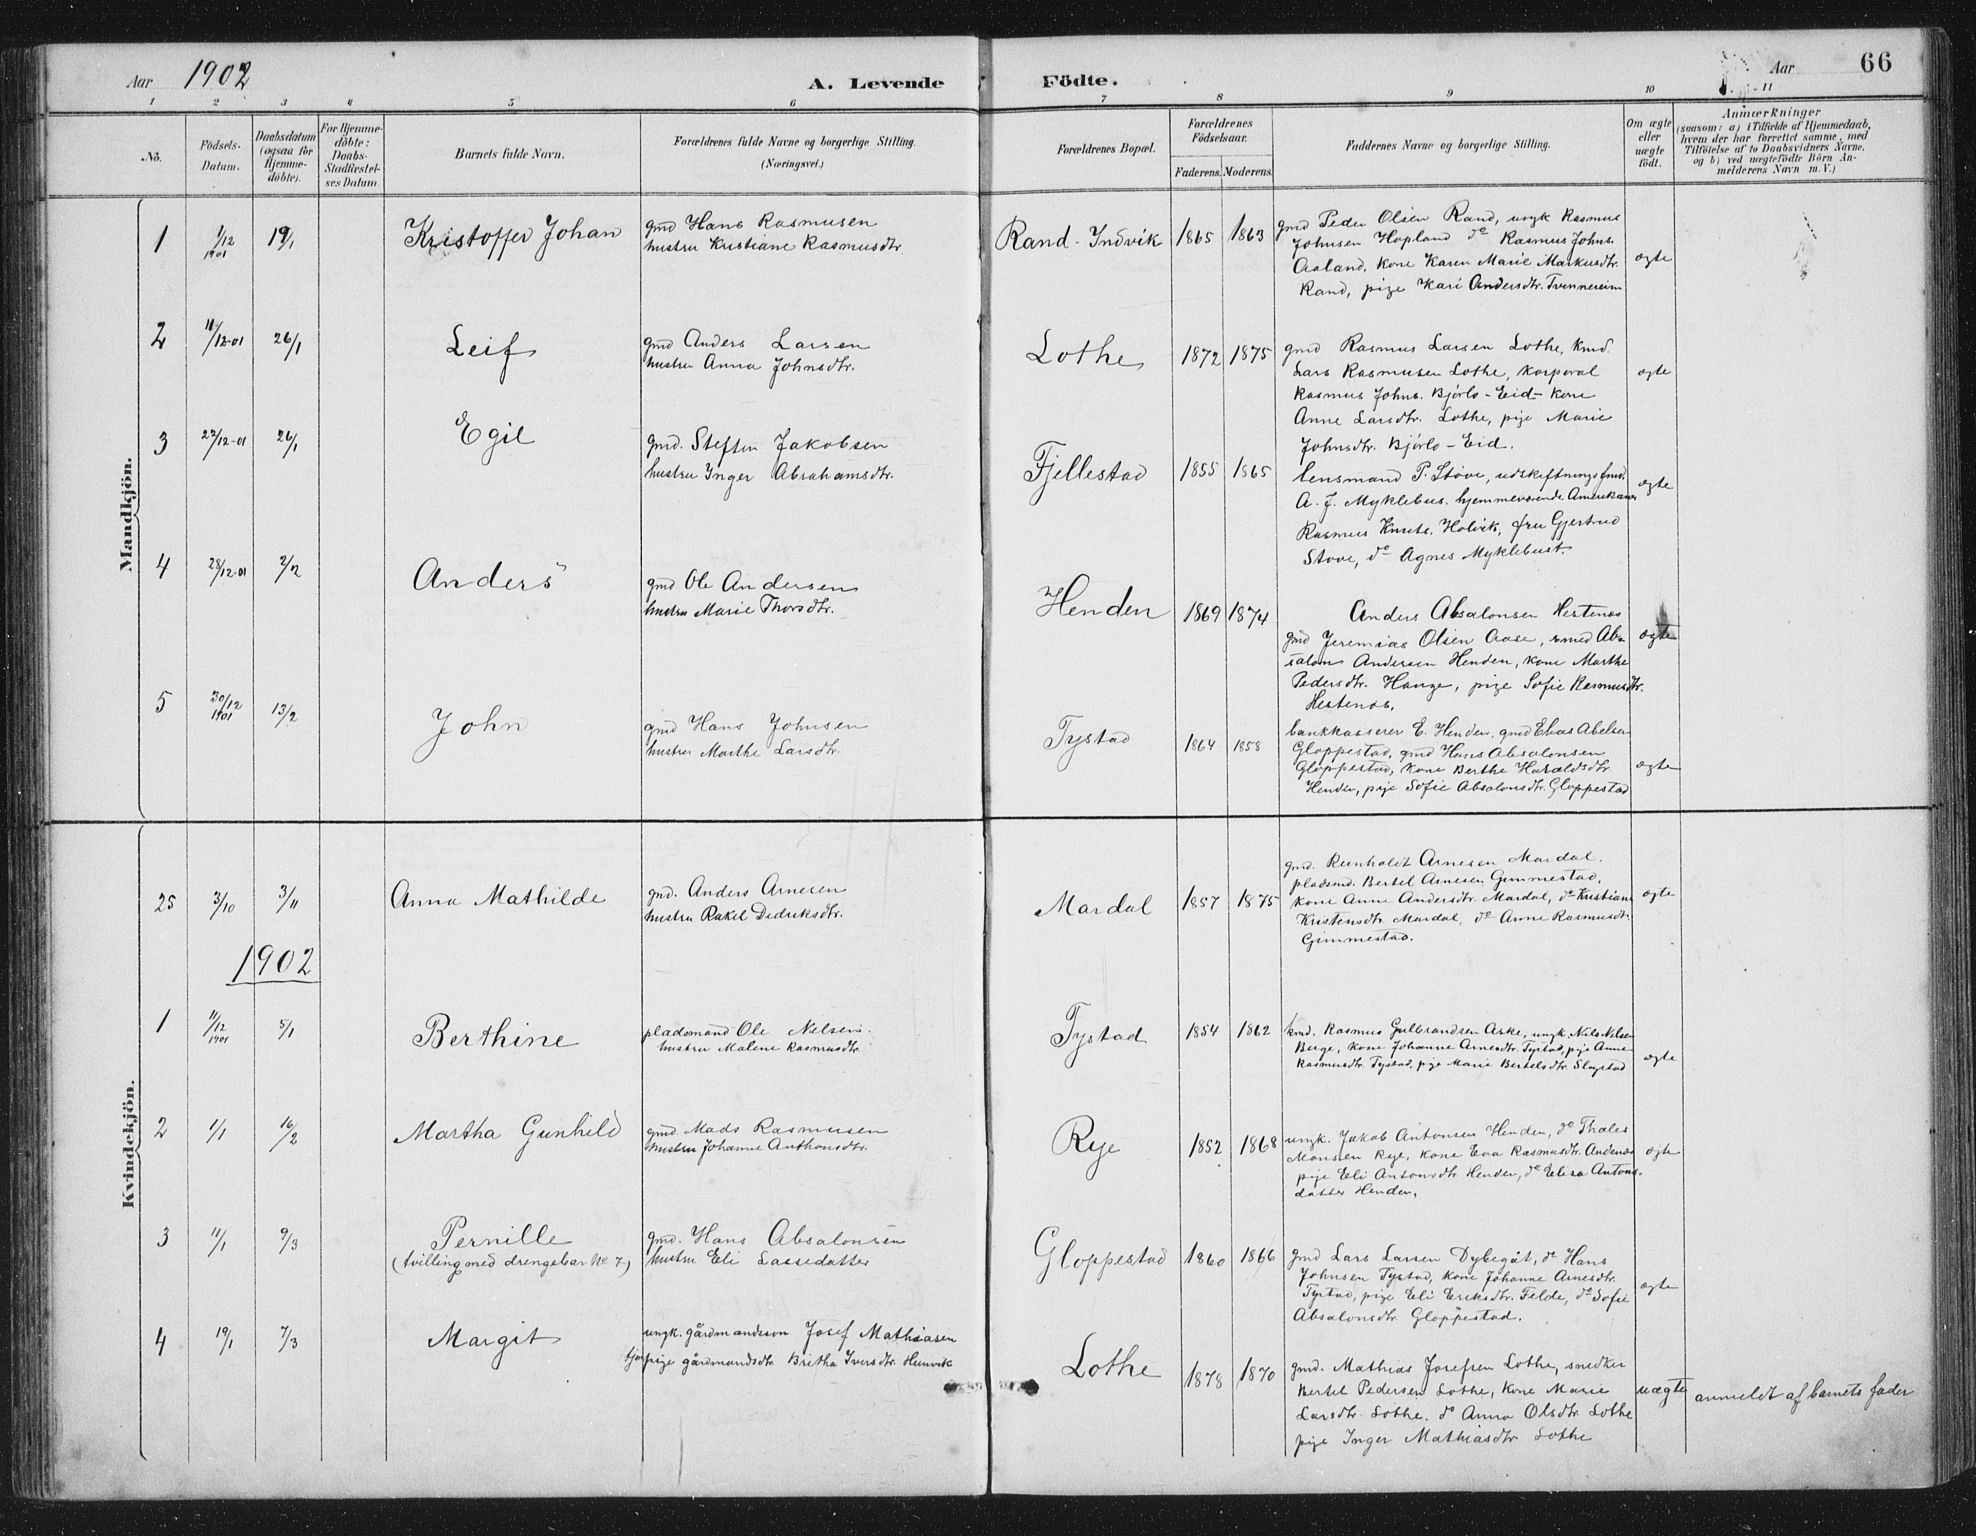 Aar 1902
A. Levende Födte.
Aar 66
1 2 3 4 5 6 7 8 9 10 11
No.
Födsels-Datum.
Daabsdatum (ogsaa för Hjemme-döbte).
For Hjemme-döbte: Daabs-Stadfæstel-ses Datum.
Barnets fulde Navn.
Forældrenes fulde Navne og borgerlige Stilling.
(Næringsvei.)
Forældrenes Bopæl.
Forældrenes Födselsaar.
Faderens. Moderens.
Faddernes Navne og borgerlige Stilling.
Om ægte eller uægte födt.
Anmærkninger
(saasom: a) i Tilfælde af Hjemmedaab,
hvem der har forrettet samme, med
Tilföielse af to Daabsvidners Navne,
og b) ved uægtefödte Börn An-
melderens Navn m. V.)
Mandkjön.
1 1/12 1901 19/1 Kristoffer Johan
gmd Hans Rasmusen
hustru Kristiane Rasmusdtr.
Rand - Indvik 1865 1863
gmd Peder Olsen Rand, ungk Rasmus
Johnsen Hopland do Rasmus Johns.
Aaland, kone Karen Marie Markusdtr.
Rand, pige Kari Andersdtr. Tvinnereim
ægte
2 11/12-01 26/1 Leif
gmd Anders Larsen
hustru Anna Johnsdtr.
Lothe 1872 1875
gmd Rasmus Larsen Lothe, kmd.
Lars Rasmusen Lothe, korporal
Rasmus Johns. Bjørlo - Eid - kone
Anne Larsdtr. Lothe, pige Marie
Johnsdtr. Bjørlo - Eid.
ægte
3 22/12-01 26/1 Egil
gmd. Steffen Jakobsen
hustru Inger Abrahamsdtr.
Fjellestad 1855 1865
lensmand P. Støve, udskiftningsfmd.
A. J. Myklebus. hjemmeværende Amerikaner
Rasmus Knuts. Holvik, fru Gjertrud
Støve, do Agnes Myklebust.
ægte
4 28/12-01 2/2 Anders
gmd Ole Andersen
hustru Marie Thorsdtr.
Henden 1869 1874
Anders Absalonsen Hestenes
gmd Jeremias Olsen Aase, smed Ab-
salom Andersen Henden, kone Marthe
Pedersdtr. Hauge, pige Sofie Rasmusdtr.
Hestenes.
ægte
5 30/12 1901 13/2 John
gmd Hans Johnsen
hustru Marthe Larsdtr.
Tystad 1864 1858
bankkasserer E. Henden, gmd Elias Abelsen
Gloppestad, gmd Hans Absalonsen
Gloppestad, kone Berthe Haraldsdtr.
Henden, pige Sofie Absalonsdtr. Gloppestad
ægte
Kvindekjön.
25 3/10 3/11 Anna Mathilde
gmd. Anders Arnesen
hustru Rakel Didriksdtr.
Mardal 1857 1875
gmd. Reinholdt Arnesen Mardal.
pladsmd. Bertel Arnesen Gimmestad,
kone Anne Andersdtr. Mardal, do Kristiane
Kristensdtr Mardal, do Anne Rasmusdtr.
Gimmestad.
ægte
1902
1 11/12 1901 5/1 Berthine
pladsmand Ole Nelsen.
hustru Malene Rasmusdtr.
Tystad 1854 1862
kmd. Rasmus Gulbrandsen Aske, ungk Nils Nilsen
Berge, kone Johanne Arnesdtr. Tystad, pige Anne
Rasmusdtr Tystad, pige Marie Bertelsdtr.
ægte
2 1/1 16/2 Martha Gunhild
gmd. Mads Rasmusen
hustru Johanne Anthonsdtr.
Rye 1852 1868
ungk. Jakob Antonsen Henden, do Thales
Monsen Rye, kone Eva Rasmusdtr. Andenæs
pige Eli Antonsdtr. Henden, do Elisa Antons-
datter Henden.
ægte
3 11/1 9/3 Pernille
(tvilling med drengebar No 7.)
gmd. Hans Absalonsen
hustru Eli Lassedatter
Gloppestad 1860 1866
gmd Lars Larsen Dybegåt, do Hans
Johnsen Tystad, kone Johanne Arnesdtr.
Tystad, pige Eli Eriksdtr. Felde, do Sofie
Absalonsdtr. Gloppestad.
ægte
4 19/1 7/3 Margit
ungk. gårdmandssøn Josef Mathiasen
pige gårdmandsdtr Britha Iversdtr. Hunvik
Lothe 1878 1870
gmd. Mathias Josefsen Lothe, snedker
Bertel Pedersen Lothe, kone Marie
Larsdtr. Lothe. do Anna Olsdtr. Lothe
pige Inger Mathiasdtr Lothe
uægte
anmeldt af barnets fader